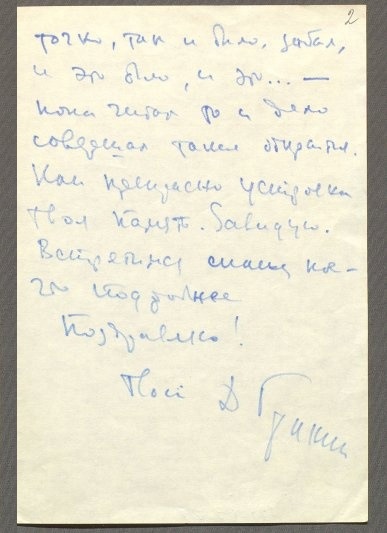 2
точно, так и было, забыл,
и это было, и это... —
пока читал то и дело
совершал такие открытия.
Как прекрасно устроена
твоя память. Завидую.
Встретимся скажу кое-
что подробнее
Поздравляю!
Твой Д Гранин